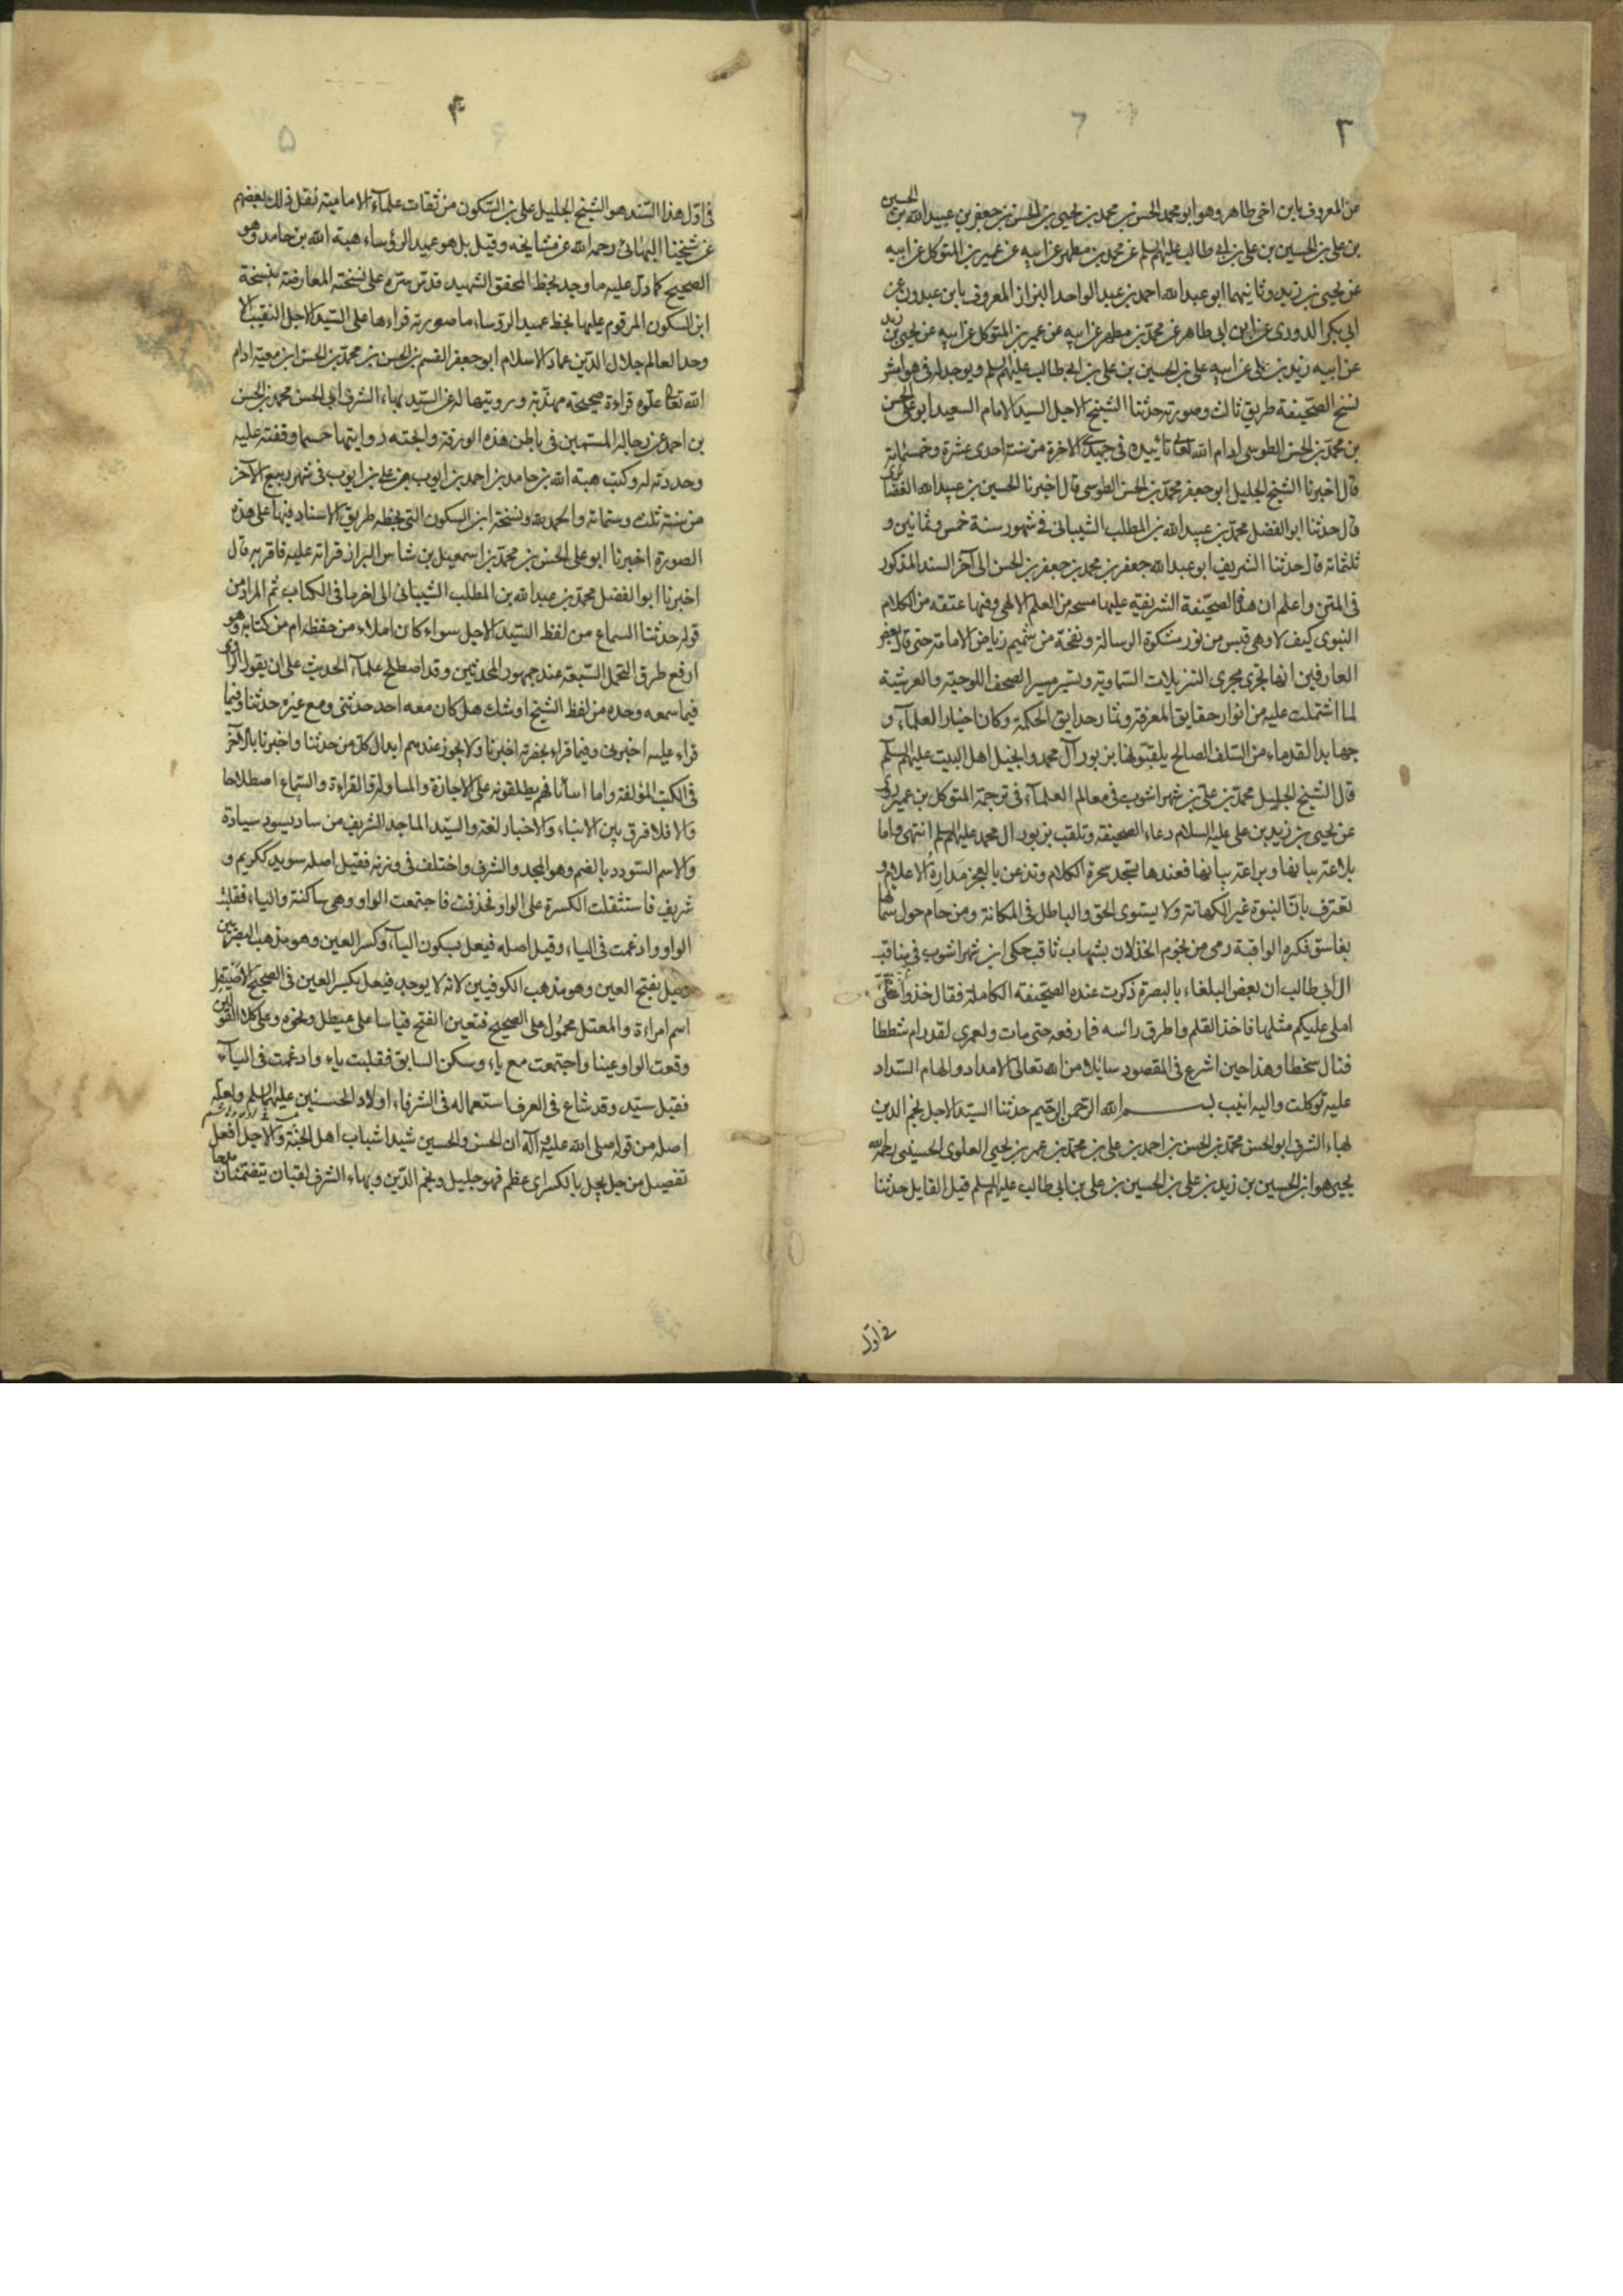 ٣
عن المعروف بابن اخی طاهر وهو ابو محمد الحسن بن محمد بن یحیی بن الحسن بن جعفر بن عبید الله بن الحسین
بن علی بن الحسین بن علی بن ابی طالب علیهم السلم عن محمد بن مطهر عن ابیه عن عمیر بن المتوکل عن ابیه
عن یحیی بن زید وثانیهما ابو عبد الله احمد بن عبد الواحد البزاز المعروف بابن عبدون عن
ابی بکر الدوری عن ابن اخی طاهر عن محمد بن مطهر عن ابیه عن عمیر بن المتوکل عن ابیه عن یحیی بن زید
عن ابیه زید بن علی عن ابیه علی بن الحسین بن علی بن ابی طالب علیهم السلم ویوجد له فی هوامش
نسخ الصحیفة طریق ثالث وصورته حدثنا الشیخ الاجل السید الامام السعید ابو علی الحسن
بن محمد بن الحسن الطوسی ادام الله تعالی تائیده فی جمیدی الاخرة من سنة احدی عشرة وخمسمائة
قال اخبرنا الشیخ الجلیل ابو جعفر محمد بن الحسن الطوسی قال اخبرنا الحسین بن عبید الله الغضائری
قال حدثنا ابو الفضل محمد بن عبید الله بن المطلب الشیبانی فی شهور سنة خمس وثمانین و
ثلثمائة قال حدثنا الشریف ابو عبد الله جعفر بن محمد بن جعفر بن الحسن الی آخر السند المذکور
فی المتن واعلم ان هذه الصحیفة الشریفة علیها مسحة من العلم الالهی وفیها عبقة من الکلام
النبوی کیف لا وهی قبس من نور مشکوة الرسالة ونفحة من شمیم ریاض الامامة حتی قال بعض
العارفین انها تجری مجری التنزیلات السماویة وتسیر مسیر الصحف اللوحیة والعرشیة
لما اشتملت علیه من انوار حقایق المعرفة وثمار حدایق الحکمة وکان اخیار العلمآء و
جهابذ القدماء من السلف الصالح یلقبونها بزبور آل محمد وانجیل اهل البیت علیهم السلم
قال الشیخ الجلیل محمد بن علی بن شهراشوب فی معالم العلمآء فی ترجمة المتوکل بن عمیر روی
عن یحیی بن زید بن علی علیه السلام دعاء الصحیفة وتلقب بزبور ال محمد علیهم السلم انتهی واما
بلاغة بیانها وبراعة بیانها فعندها تسجد سحرة الکلام وتذعن بالعجز مدارة الاعلام و
تعترف بان النبوة غیر الکهانة ولا یستوی الحق والباطل فی المکانة ومن حام حول سمائها
بغاسق فکره الواقبة رمی من نجوم الخذلان بشهاب ثاقب حکی ابن شهراشوب فی مناقب
ال ابی طالب ان بعض البلغاء بالبصرة ذکرت عنده الصحیفة الکاملة فقال خذوا عنی حتی
املی علیکم مثلها فاخذ القلم واطرق رائسه فما رفعه حتی مات ولعمری لقد رام شططا
فنال سخطا وهذا حین اشرع فی المقصود سایلا من الله تعالی الامداد والهام السداد
علیه توکلت والیه انیب بسم الله الرحمن الرحیم حدثنا السید الاجل نجم الدین
بهاء الشرف ابو الحسن محمد بن الحسن بن احمد بن علی بن محمد بن عمر بن یحیی العلوی الحسینی رحمه الله
یحیی هو ابن الحسین بن زید بن علی بن الحسین بن علی بن ابی طالب علیهم السلم قیل القایل حدثنا
فی اول
۴
فی اول هذا السند هو الشیخ الجلیل علی بن السکون من ثقات علمآء الامامیة نقل ذلک بعضهم
عن شیخنا البهائی رحمه الله عن مشایخه وقیل بل هو عمید الرؤساء هبة الله بن حامد وهو
الصحیح کما دل علیه ما وجد بخط المحقق الشهید قدس سره علی نسخته المعارضة بنسخة
ابن السکون المرقوم علیها بخط عمید الرؤساء ما صورته قراءها علی السید الاجل النقیب الا
وحد العالم جلال الدین عماد الاسلام ابو جعفر القسم بن الحسن بن محمد بن الحسن ابن معیة ادام
الله تعالی علوه قراءة صحیحة مهذبة ورویتها له عن السید بهاء الشرف ابی الحسن محمد بن الحسن
بن احمد عن رجاله المسمین فی باطن هذه الورقة وابحته روایتها حسبما وقفته علیه
وحددته له وکتب هبة الله بن حامد بن احمد بن ایوب بن علی بن ایوب فی شهر ربیع الآخر
من سنة ثلث وستمائة والحمد لله ونسخة ابن السکون التی بخطه طریق الاسناد فیها علی هذه
الصورة اخبرنا ابو علی الحسن بن محمد بن اسمعیل بن شاس البزاز قراته علیه فاقر به قال
اخبرنا ابو الفضل محمد بن عبد الله بن المطلب الشیبانی الی اخر ما فی الکتاب ثم المراد من
قوله حدثنا السماع من لفظ السید الاجل سواء کان املاء من حفظه ام من کتابه وهو
ارفع طرق التحمل السبعة عند جمهور المحدثین وقد اصطلح علمآء الحدیث علی ان یقول الراوی
فیما سمعه وحده من لفظ الشیخ او شک هل کان معه احد حدثنی ومع غیره حدثنا وفیما
قراء علیه اخبرنی وفیما قراء بحضرته اخبرنا ولا یجوز عندهم ابدال کل من حدثنا واخبرنا بالآخر
فی الکتب المؤلفة واما انبأنا فهم یطلقونه علی الاجازة والمناولة والقراءة والسماع اصطلاحا
والا فلا فرق بین الانباء والاخبار لغة والسید الماجد الشریف من ساد یسود سیادة
والاسم السؤدد بالضم وهو المجد والشرف واختلف فی وزنه فقیل اصله سوید ککریم و
شریف فاستثقلت الکسرة علی الواو فحذفت فاجتمعت الواو وهی ساکنة والیاء فقلبت
الواو وادغمت فی الیاء وقیل اصله فیعل بسکون الیآء وکسر العین وهو مذهب البصریین
وقیل بفتح العین وهو مذهب الکوفیین لانه لا یوجد فیعل بکسر العین فی الصحیح الا صیقل
اسم امراءة والمعتل محمول علی الصحیح فتعین الفتح قیاسا علی عیطل ونحوه وعلی کلا القولین
وقعت الواو عینا واجتمعت مع یاء وسکن السابق فقلبت یاء وادغمت فی الیآء
فقیل سید وقد شاع فی العرف استعماله فی الشرفاء اولاد الحسنین علیهما السلم ولعله
اصله من قوله صلی الله علیه وآله ان الحسن والحسین سیدا شباب اهل الجنة والاجل افعل
تفصیل من جل یجل بالکسر ای عظم فهو جلیل ونجم الدین وبهاء الشرف لقبان یتضمنان